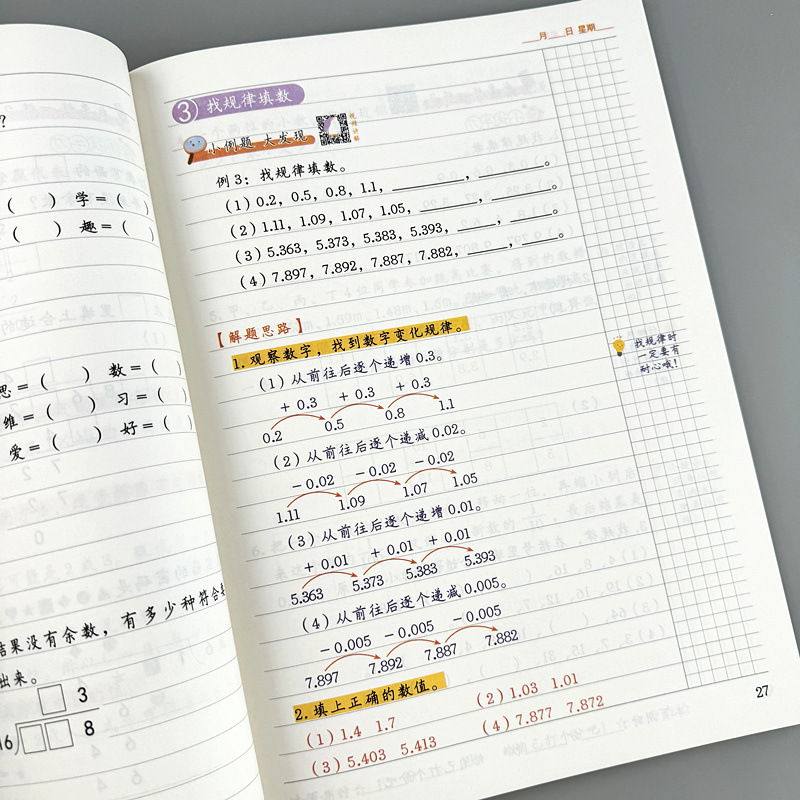 ?
( ) 学=( )
( ) 趣=( )
思=( ) 数=( )
维=( ) 习=( )
爱=( ) 好=( )
结果没有余数,有多少种符合
出来。
□ 3
16)□□ 8
月 日 星期
③ 找规律填数
小例题 大发现
视频讲解
例3:找规律填数。
(1)0.2,0.5,0.8,1.1,______,______。
(2)1.11,1.09,1.07,1.05,______,______。
(3)5.363,5.373,5.383,5.393,______,______。
(4)7.897,7.892,7.887,7.882,______,______。
【解题思路】
1.观察数字,找到数字变化规律。
(1)从前往后逐个递增0.3。
+0.3 +0.3 +0.3
0.2 0.5 0.8 1.1
(2)从前往后逐个递减0.02。
-0.02 -0.02 -0.02
1.11 1.09 1.07 1.05
(3)从前往后逐个递增0.01。
+0.01 +0.01 +0.01
5.363 5.373 5.383 5.393
(4)从前往后逐个递减0.005。
-0.005 -0.005 -0.005
7.897 7.892 7.887 7.882
2.填上正确的数值。
(1)1.4 1.7 (2)1.03 1.01
(3)5.403 5.413 (4)7.877 7.872
找规律时
一定要有
耐心哦!
27